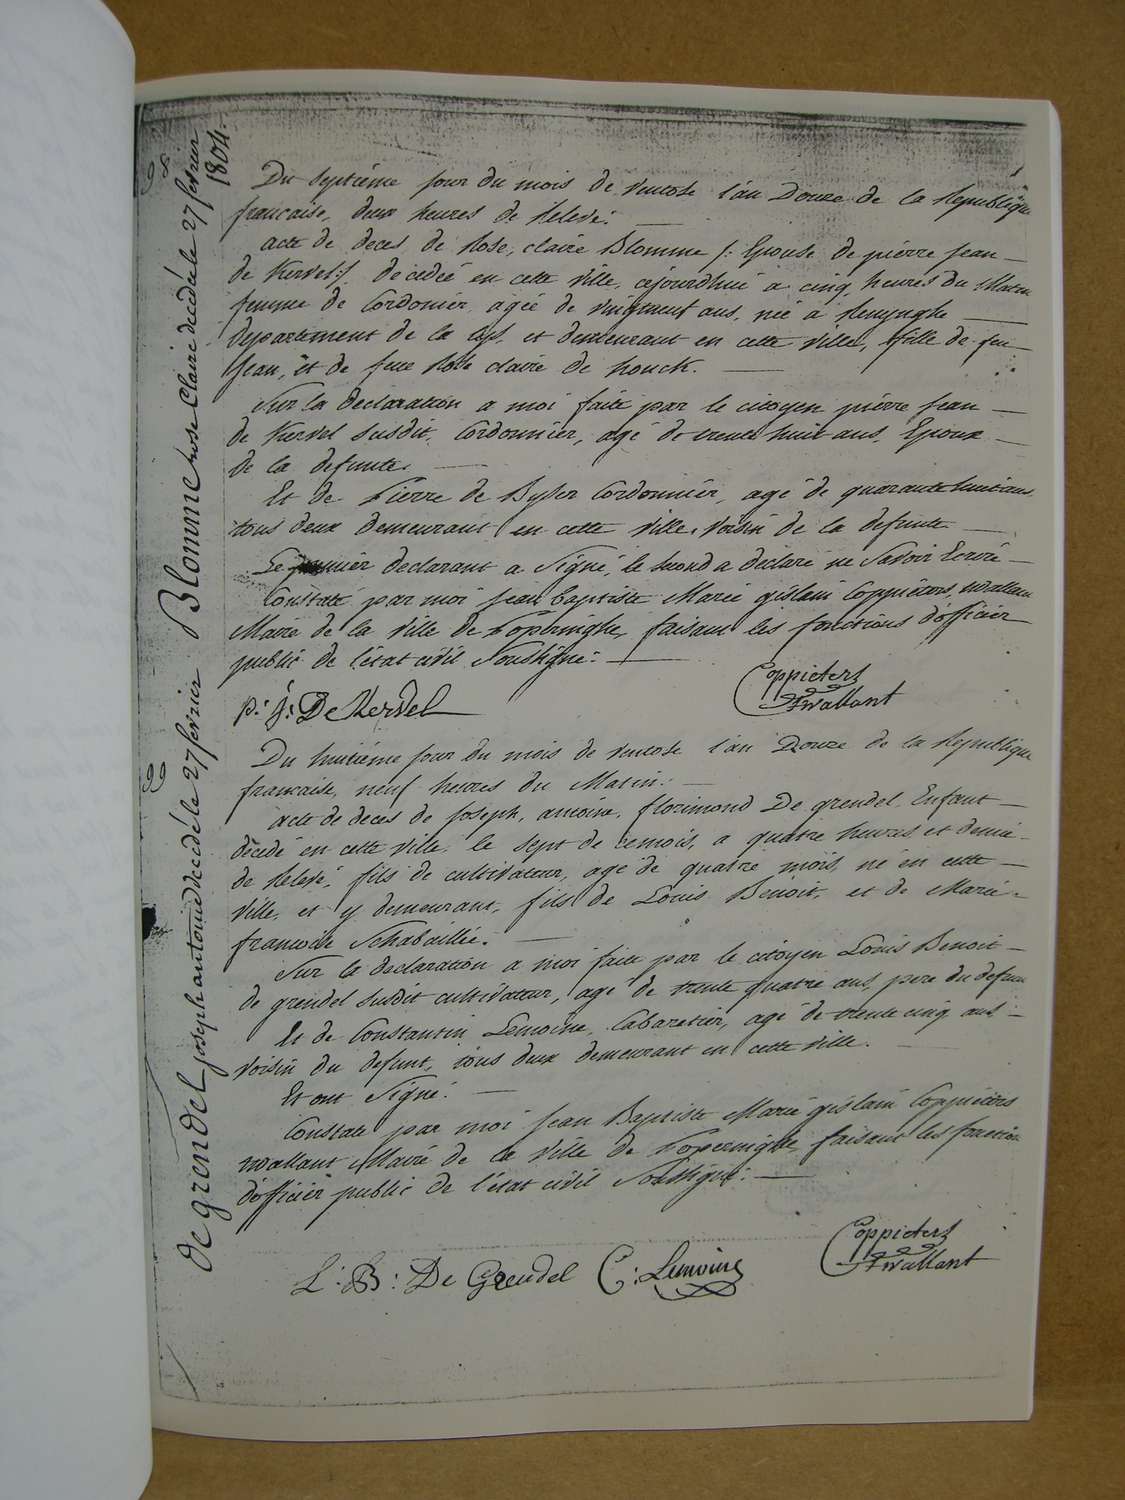 98
Blomme rose Claire decédée le 27 février
1804.
Du septième jour du mois de ventose l'an Douze de la Republique
francaise, deux heures de Relevé:
acte de deces de Rose, claire Blomme /: Epouse de pierre jean
de Kervel :/ decedée en cette ville, cejourdhui a cinq heures du Matin
femme de Cordonier, agée de vingtneuf ans, née à Renynghe
Departement de la Lys, et demeurant en cette ville, fille de feu
Jean, et de feue Rose claire de houck.
Sur la declaration a moi faite par le citoyen pierre jean
de Kervel susdit, Cordonnier, agé de trente huit ans, Epoux
de la defunte.
Et de Pierre de Byser Cordonnier, agé de quarante huit ans
tous deux demeurant en cette ville, voisin de la defunte
Le premier declarant a signé, le second a declaré ne savoir Ecrire
Constaté par moi Jean Baptiste Marie gislain Coppieters, wallant
Maire de la ville de Poperinghe, faisant les fonctions d'officier
public de l'état civil Soussigné:
p: j: De Kervel
Coppieters
wallant
99
De grendel joseph antoine decédé le 27 février
Du huitième jour du mois de ventose l'an Douze de la Republique
francaise, neuf heures du Matin:
Acte de deces de Joseph, antoine, florimond De grendel, Enfant
décédé en cette ville, le sept de cemois, a quatre heures et demie
de Relevé, fils de cultivateur, agé de quatre mois, né en cette
ville, et y demeurant, fils de Louis Benoit, et de Marie
francoise Schabaillie.
Sur la declaration a moi faite par le citoyen Louis Benoit
de grendel susdit cultivateur, agé de trente quatre ans, pere du defunt
Et de Constantin Lemoine, Cabaretier, agé de trente cinq ans
voisin du defunt, tous deux demeurant en cette ville.
Et ont Signé.
Constaté par moi Jean Baptiste Marie gislain Coppieters
wallant Maire de la ville de Poperinghe, faisant les fonction
d'officier public de l'état civil Soussigné:
L: B: De Grendel C: Lemoine
Coppieters
wallant